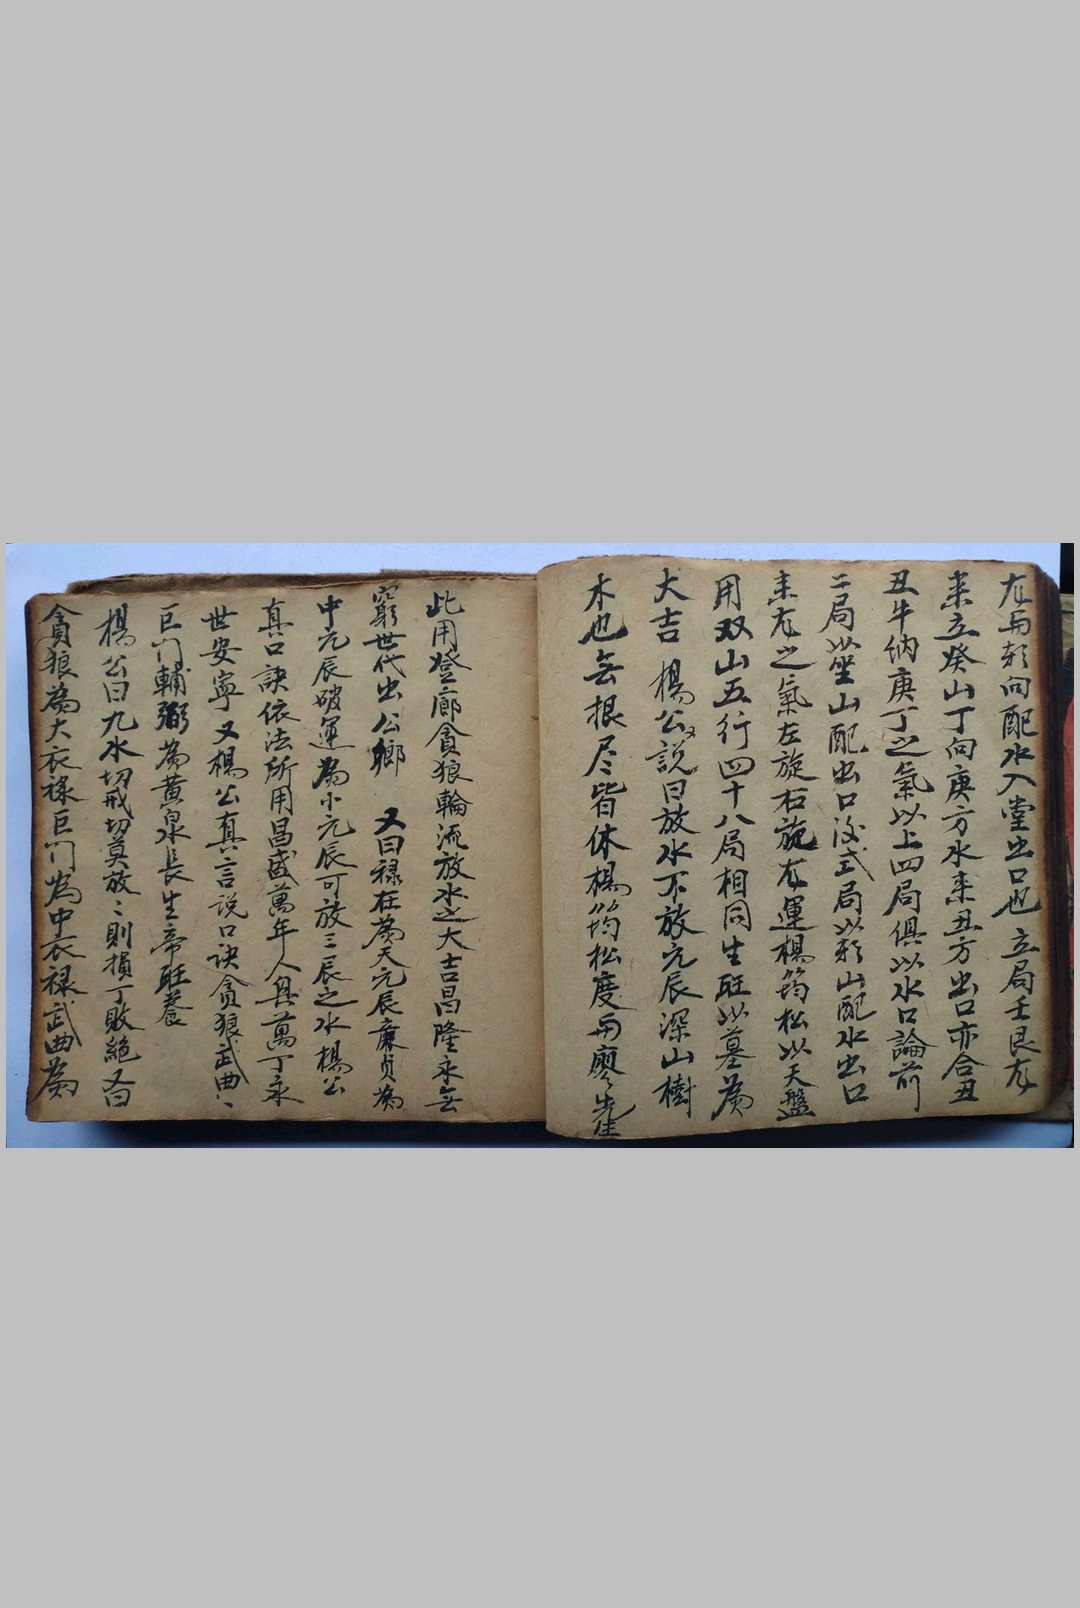 龙与彭向配水入堂出口也 立局壬艮龙
来立癸山丁向庚方水来丑方出口亦合丑
丑牛纳庚丁之氣以上四局俱以水口論前
二局以坐山配出口後式局以彭山配水出口
来龙之氣左旋右旋龙運楊筠松以天盤
用双山五行四十八局相同生旺以墓為
大吉 楊公又説曰放水不放元辰深山樹
木也無根尽皆休楊筠松度与廖先生
此用登廊貪狼輪流放水之大吉昌隆永無
窮世代出公鄉 又曰禄在為天元辰廉贞為
中元辰破運為小元辰可放三辰之水楊公
真口訣依法所用昌盛萬年人興萬丁永
世安寧 又楊公真言説口诀貪狼武曲〻
巨门輔弼為黄泉長生帝旺養
楊公曰九水切戒切莫放〻則損丁敗絶又曰
貪狼為大衣禄巨门为中衣禄武曲為